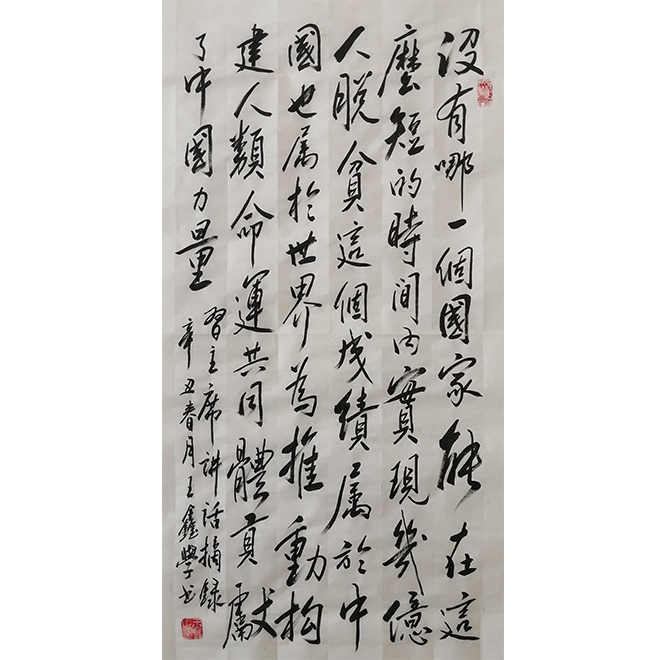 没有哪一個國家能在這
麼短的時間内實現幾億
人脱貧這個成績属於中
國也属於世界為推動构
建人類命運共同體貢獻
了中國力量
習主席讲話摘録
辛丑春月王鑫學书